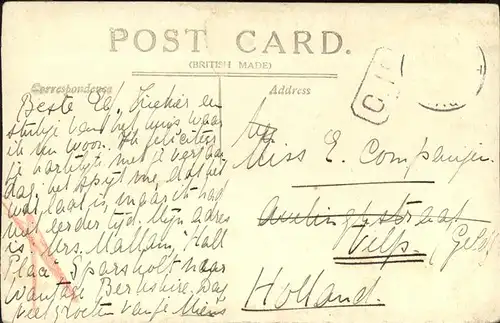 POST CARD.
(BRITISH MADE)
Correspondence
Address
Beste Eef. Hierbij een
stukje van het huis waar
ik nu woon. Ik feliciteer
je hartelijk met je verjaar
dag. het spijt me, dat het
wat laat is, maar ik had
niet eerder tijd. Mijn adres
is Mrs. Mallam, Hall
Place Sparsholt near
Wantage Berkshire. Dag
veel groeten van je Miens
Miss E. Companjen.
Velp. (Geld.)
Holland.